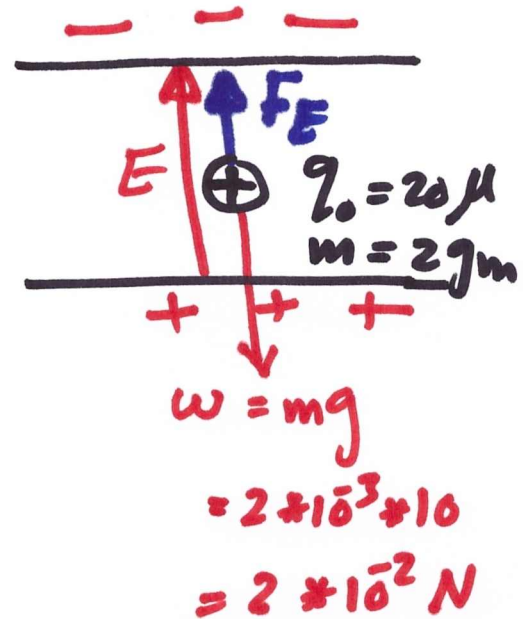 − − −
F_E
E
+
q₀ = 20 μ
m = 2 gm
+ + +
w = mg
= 2 * 10⁻³ * 10
= 2 * 10⁻² N